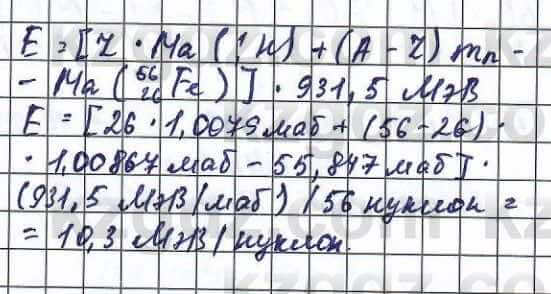 E = [Z · Ma (¹₁H) + (A - Z) mn -
- Ma (⁵⁶₂₆Fe)] · 931,5 МэВ
E = [26 · 1,0079 маб + (56-26) ·
· 1,00867 маб - 55,847 маб] ·
(931,5 МэВ/маб) / 56 нуклон =
= 10,3 МэВ/нуклон.